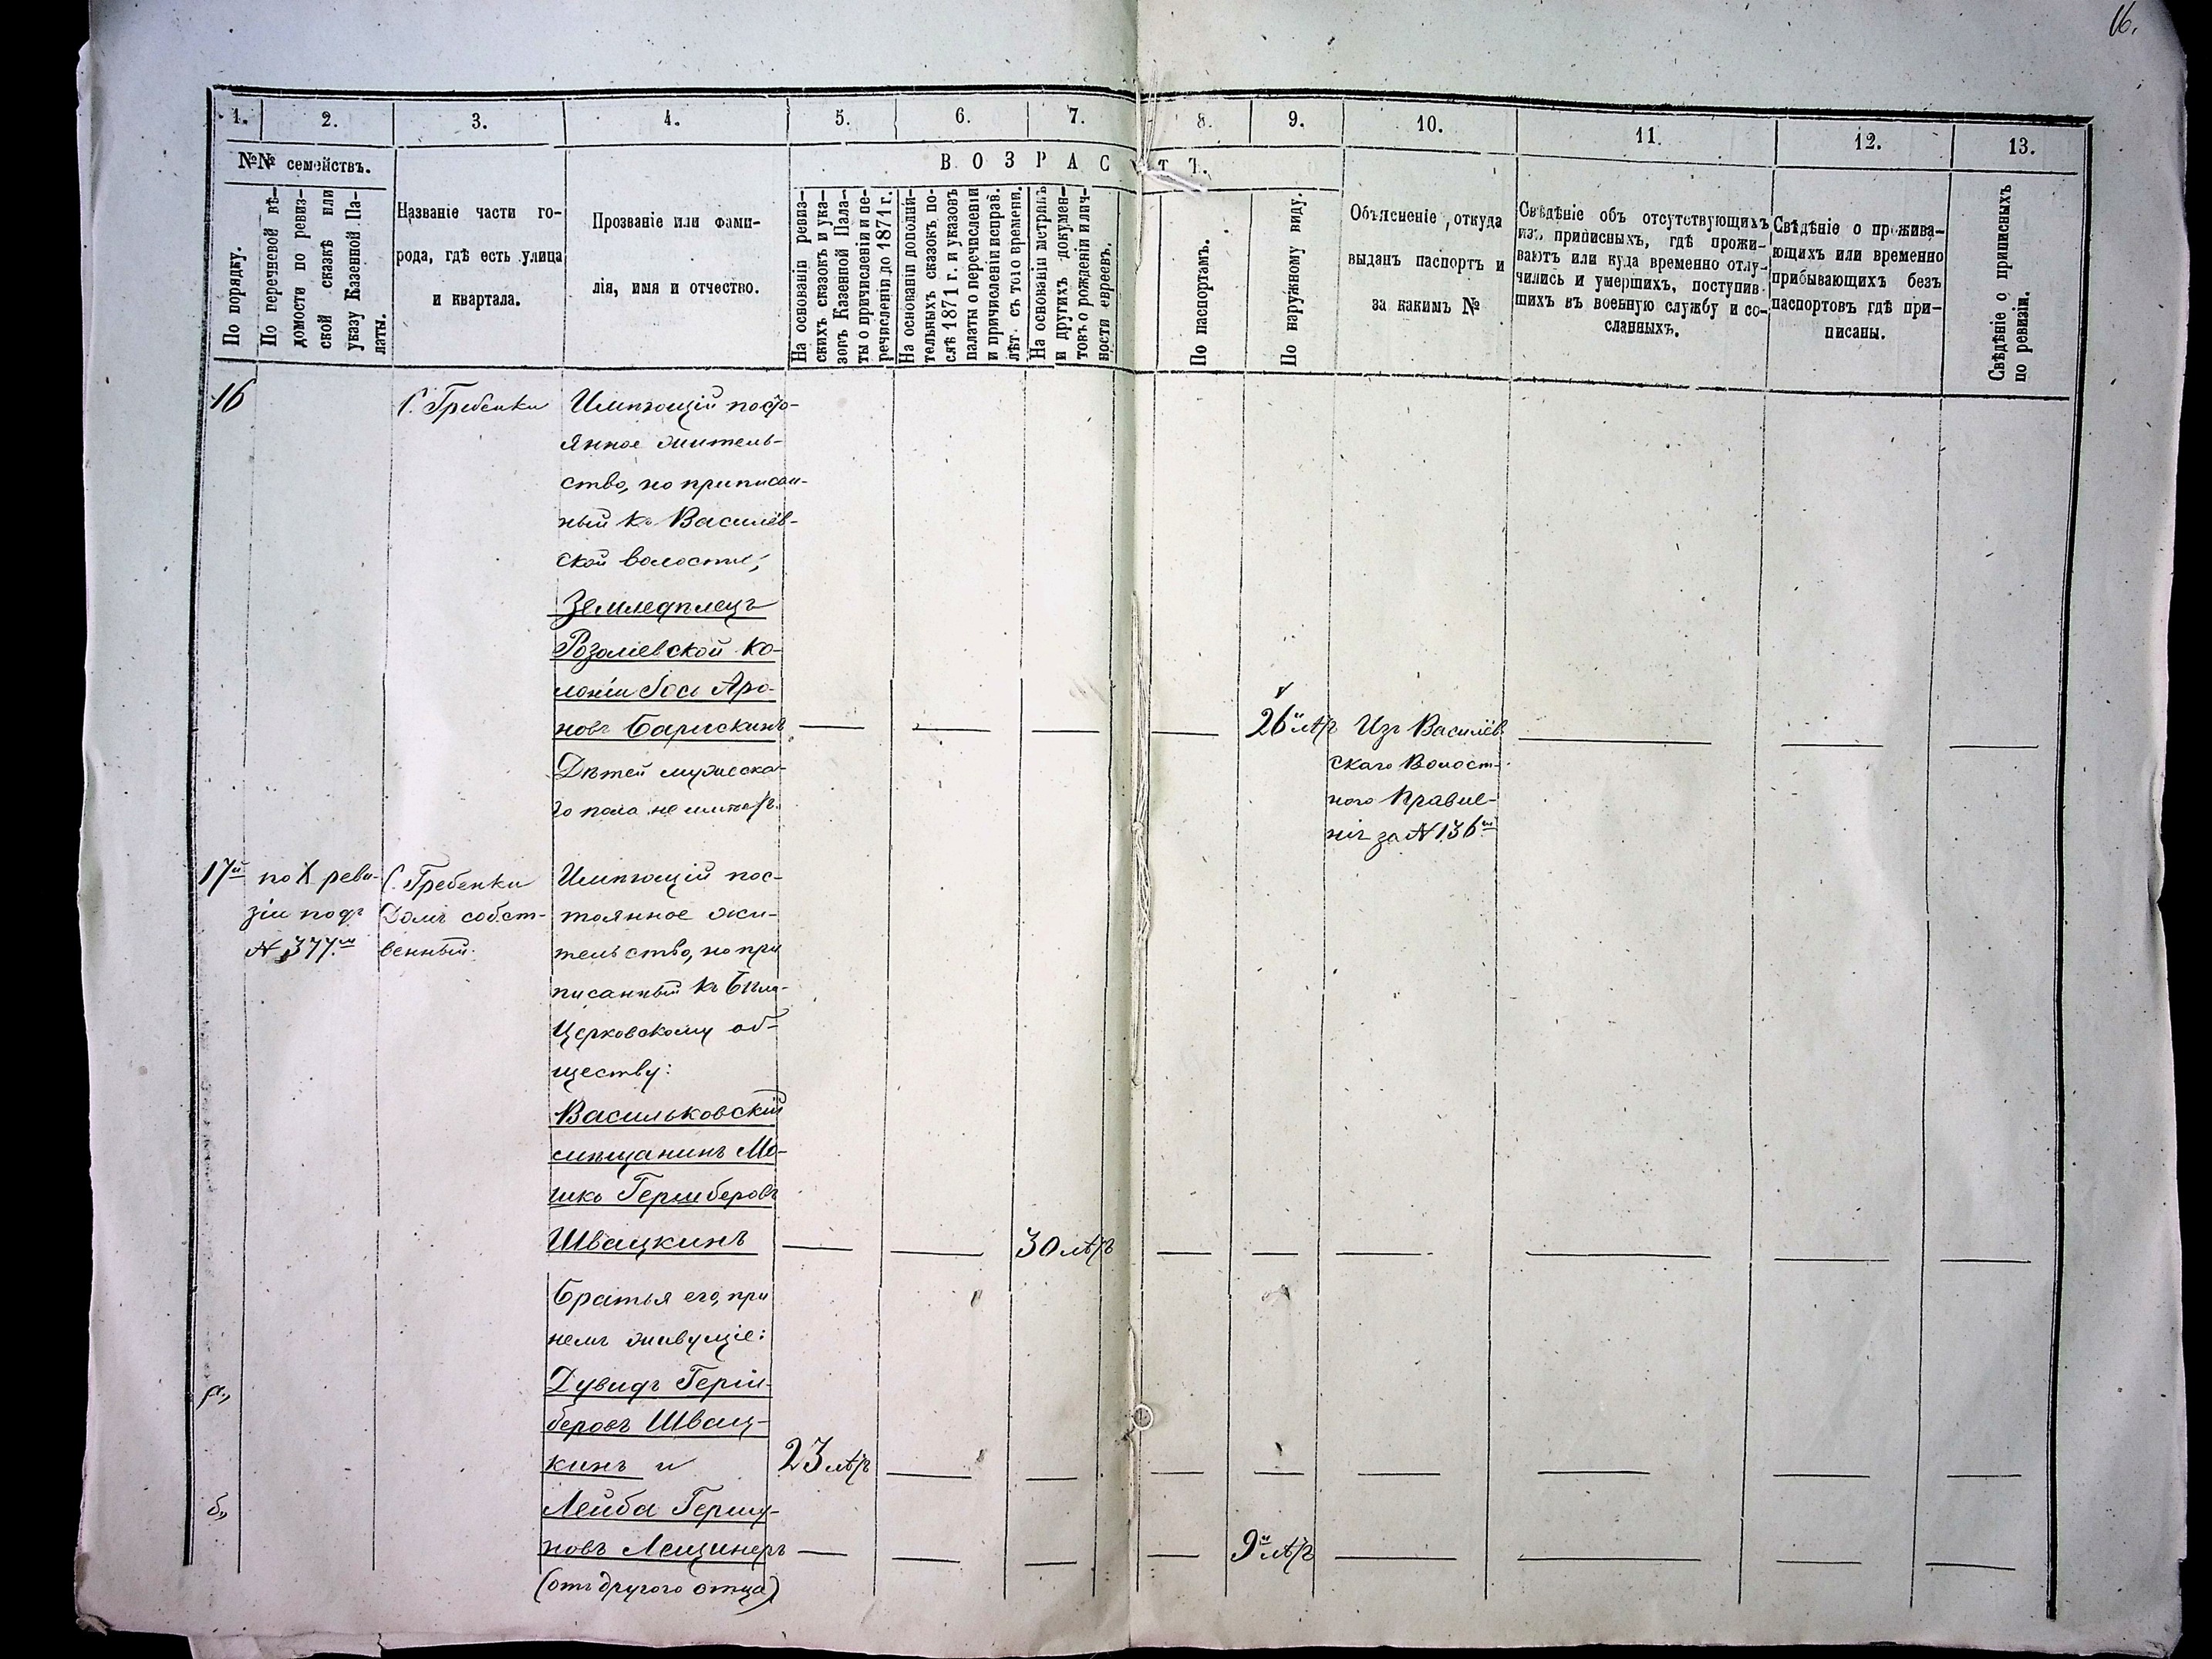 16.
1.
2.
3.
4.
5.
6.
7.
8.
9.
10.
11.
12.
13.
№№ семействъ.
ВОЗРАСТЪ.
По порядку.
По перечневой вѣ-
домости по ревиз-
ской сказкѣ или
указу Казенной Па-
латы.
Названіе части го-
рода, гдѣ есть улица
и квартала.
Прозваніе или фами-
лія, имя и отчество.
На основаніи ревиз-
скихъ сказокъ и ука-
зовъ Казенной Пала-
ты о причисленіи и пе-
речисленіи до 1871 г.
На основаніи дополни-
тельныхъ сказокъ по-
слѣ 1871 г. и указовъ
палаты о перечисленіи
и причисленіи исправ.
лѣт. съ того времени.
На основаніи метрикъ
и другихъ докумен-
товъ о рожденіи и лич-
ности евреевъ.
По паспортамъ.
По наружному виду.
Объясненіе, откуда
выданъ паспортъ и
за какимъ №
Свѣдѣніе объ отсутствующихъ
изъ приписныхъ, гдѣ прожи-
ваютъ или куда временно отлу-
чились и умершихъ, поступив-
шихъ въ военную службу и со-
сланныхъ.
Свѣдѣніе о прожива-
ющихъ или временно
прибывающихъ безъ
паспортовъ гдѣ при-
писаны.
Свѣдѣніе о приписныхъ
по ревизіи.
16
С. Гребенки
Имѣющій посто-
янное житель-
ство, но приписан-
ный къ Василев-
ской волости;
Земледѣлецъ
Розаліевской ко-
лоніи Іось Аро-
новъ Барискинъ
26 лѣтъ
Изъ Василев-
скаго Волост-
ного Правле-
нія за № 136
Дѣтей мужеска-
го пола не имѣетъ.
17й
по X реви-
зіи подъ
№ 377.
С. Гребенки
Домъ собст-
венный.
Имѣющій пос-
тоянное жи-
тельство, но при
писанный къ Бѣло-
Церковскому об-
ществу:
Васильковскій
мѣщанинъ Мо-
шко Гершберовъ
Швацкинъ
30 лѣтъ
Братья его, при
немъ живущіе:
а.,
Дувидъ Герш-
беровъ Швац-
кинъ и
23 лѣтъ
б.,
Лейба Гершу-
новъ Лещинеръ
9 лѣтъ
(отъ другого отца)